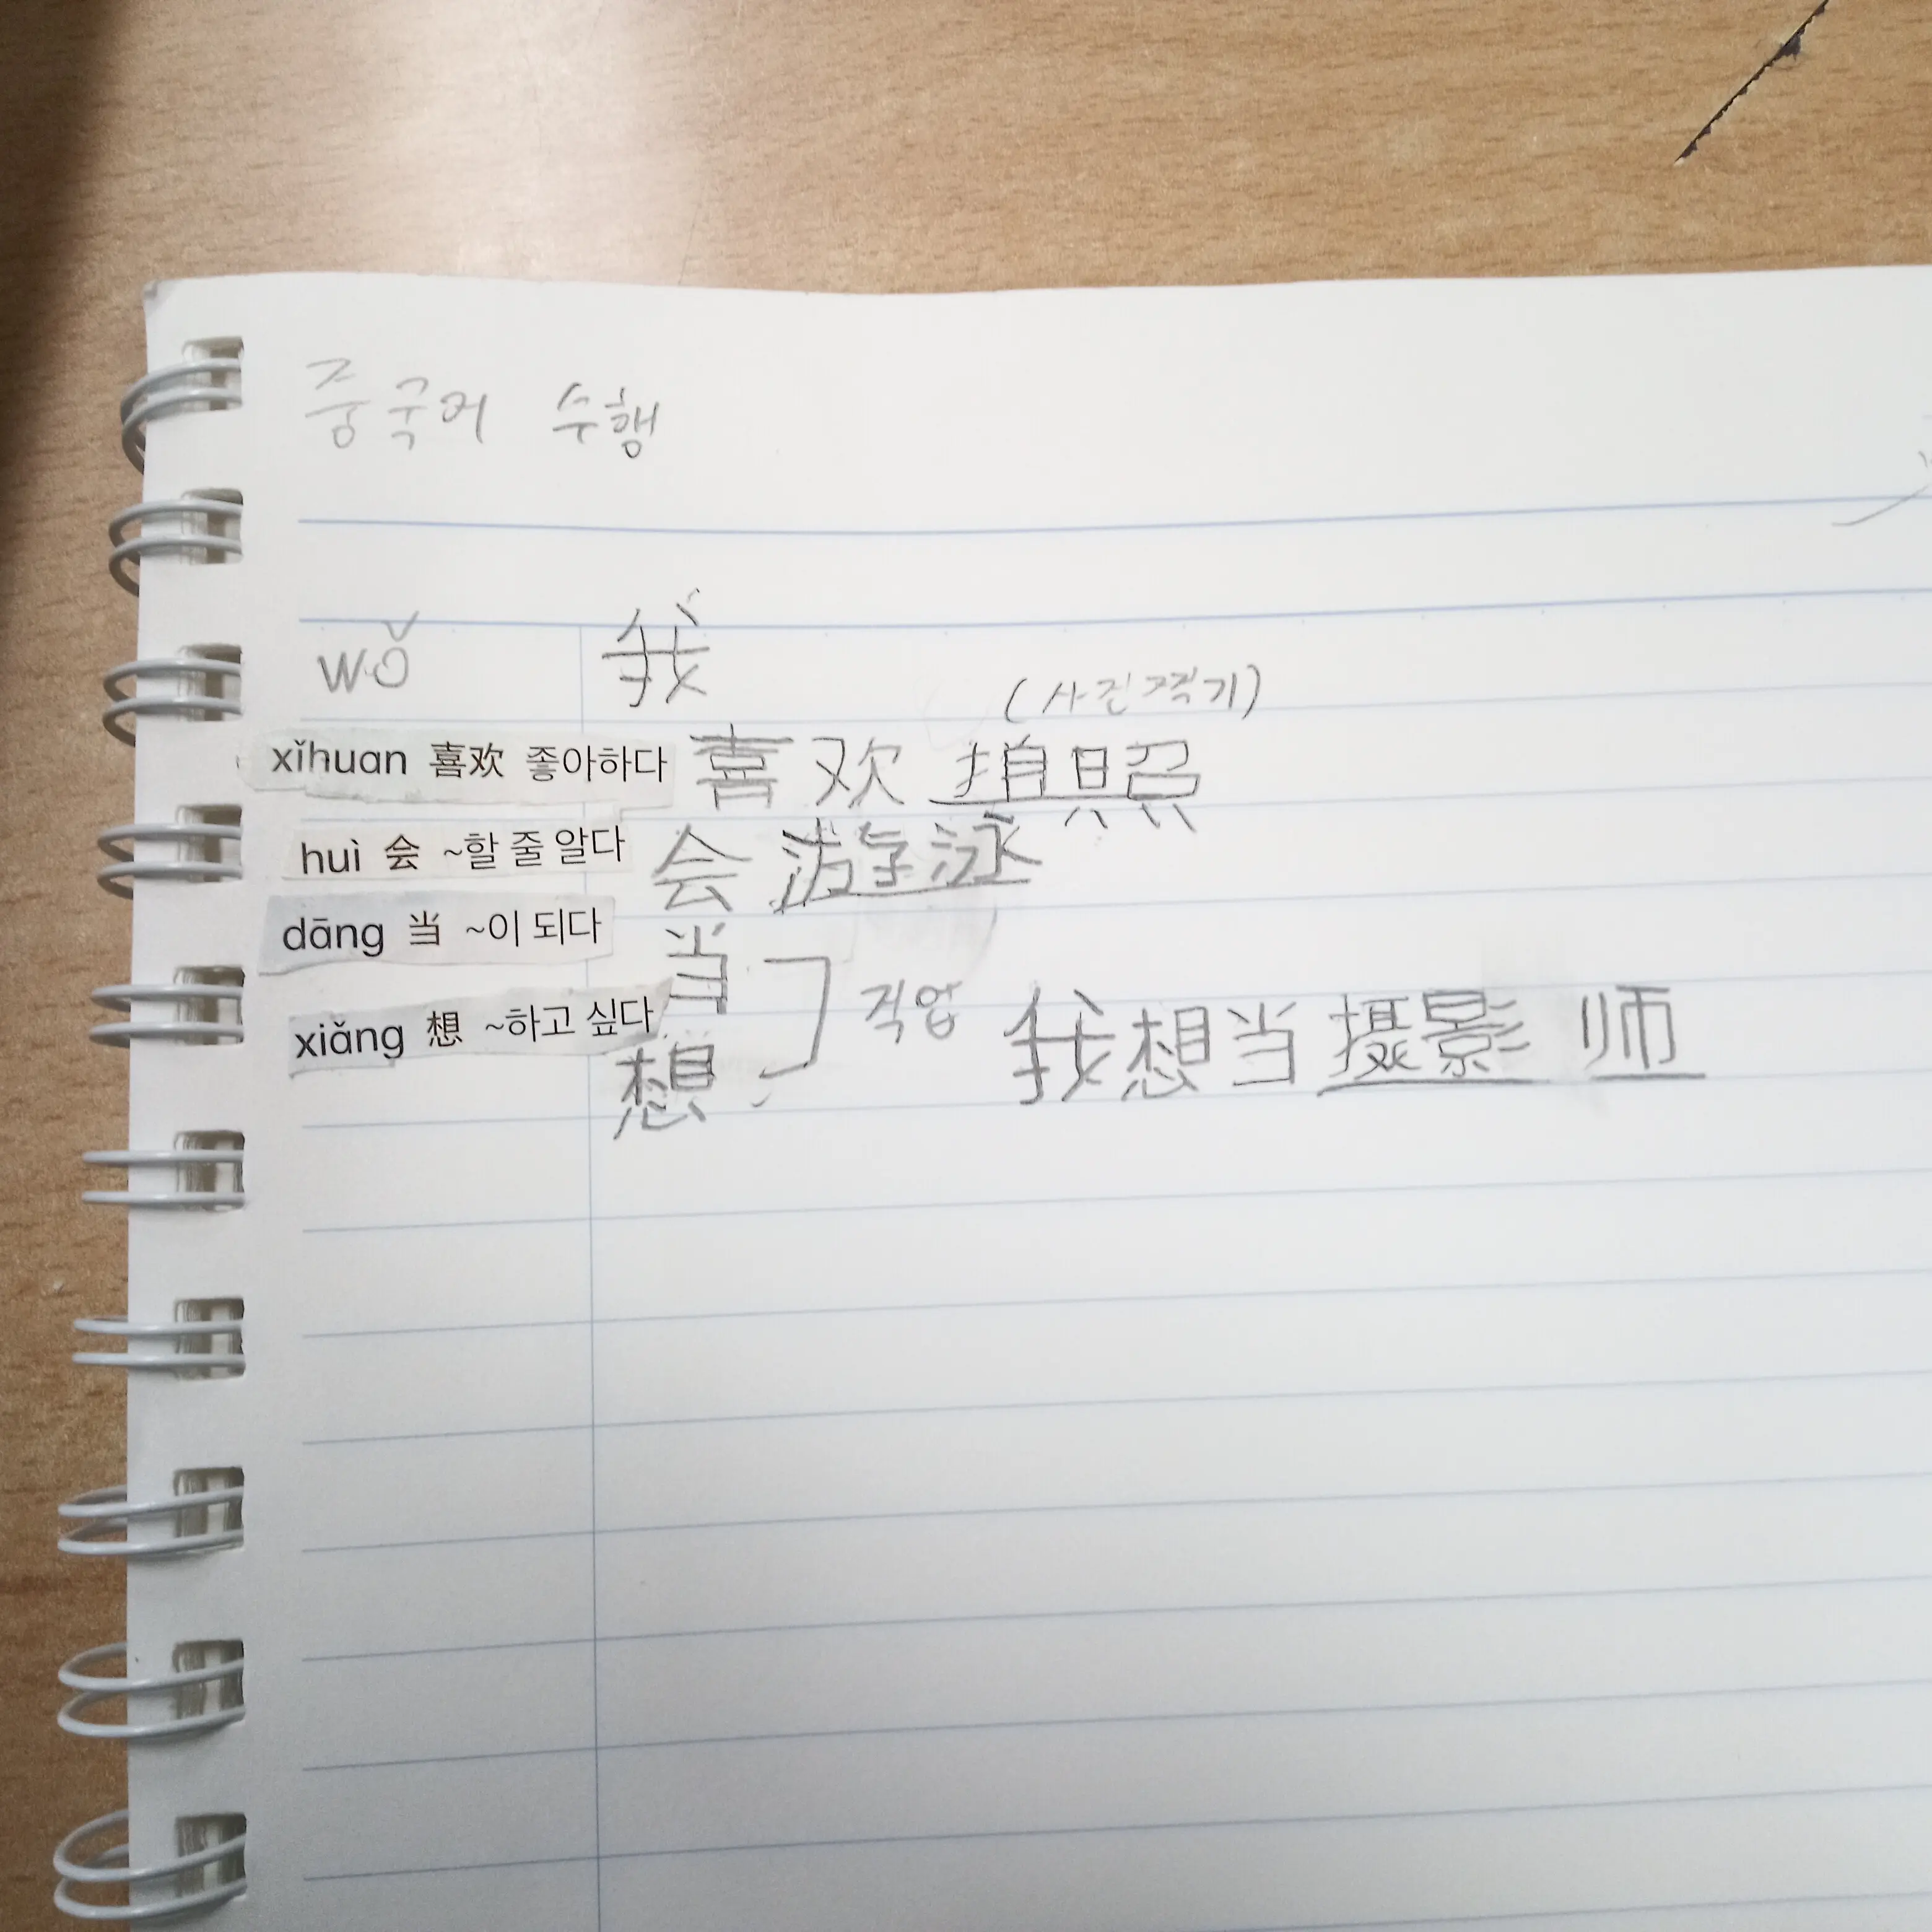 중국어 수행
wǒ 我
(사진찍기)
xǐhuan 喜欢 좋아하다 喜欢 拍照
huì 会 ~할 줄 알다 会 游泳
dāng 当 ~이 되다 当
직업 我想当摄影师
xiǎng 想 ~하고 싶다 想